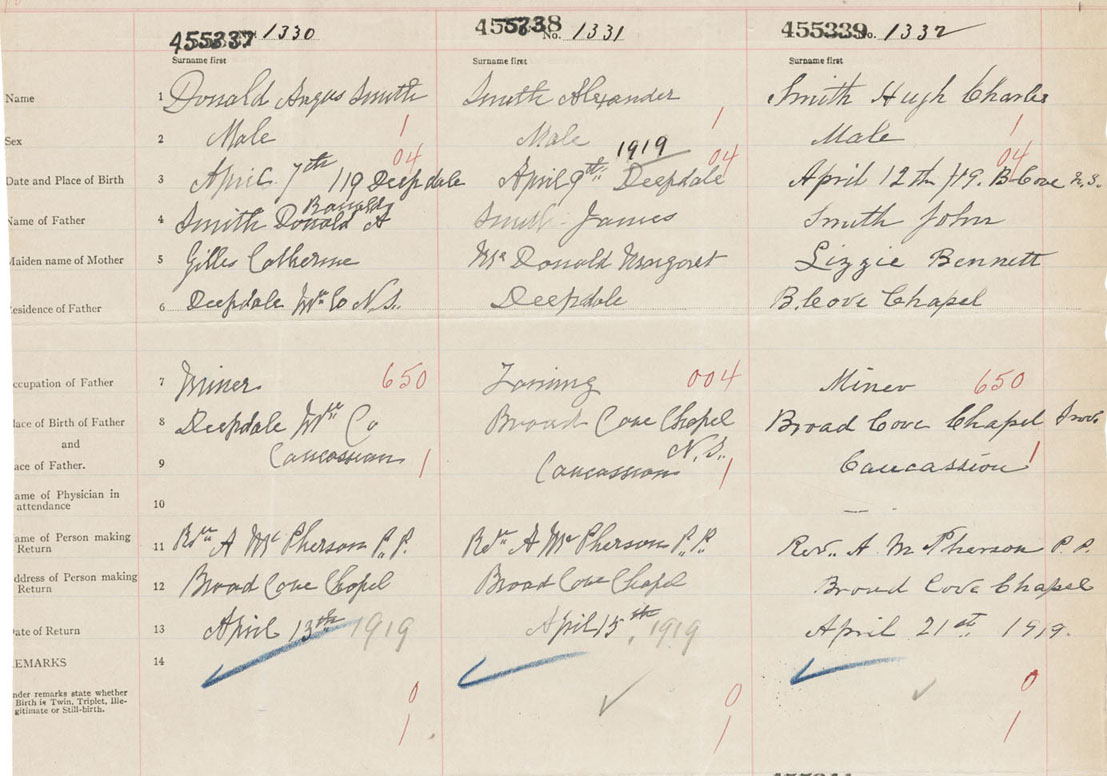 455337 1330 455338 No. 1331 455339 No. 1332
Surname first Surname first Surname first
Name 1 Donald Angus Smith Smith Alexander Smith Hugh Charles
1 1 1
Sex 2 Male Male Male
04 1919 04 04
Date and Place of Birth 3 April 7th /19 Deepdale April 9th Deepdale April 12th /19. B. Cove N.S.
Ronald
Name of Father 4 Smith Donald A Smith James Smith John
Maiden name of Mother 5 Gilles Catherine Mc Donald Margaret Lizzie Bennett
esidence of Father 6 Deepdale Co N.S. Deepdale B. Cove Chapel
ccupation of Father 7 Miner 650 Farming 004 Miner 650
lace of Birth of Father 8 Deepdale Co Broad Cove Chapel Broad Cove Chapel
and N.S.
ace of Father. 9 Caucassian 1 Caucassian 1 Caucassion 1
ame of Physician in
attendance 10
ame of Person making
Return 11 Rev A McPherson P.P. Rev A McPherson P.P. Rev.. A McPherson P.P.
ddress of Person making
Return 12 Broad Cove Chapel Broad Cove Chapel Broad Cove Chapel
ate of Return 13 April 13th 1919 April 15th, 1919 April 21st 1919.
EMARKS 14
nder remarks state whether 0 0 0
Birth is Twin, Triplet, Ille-
gitimate or Still-birth. 1 1 1